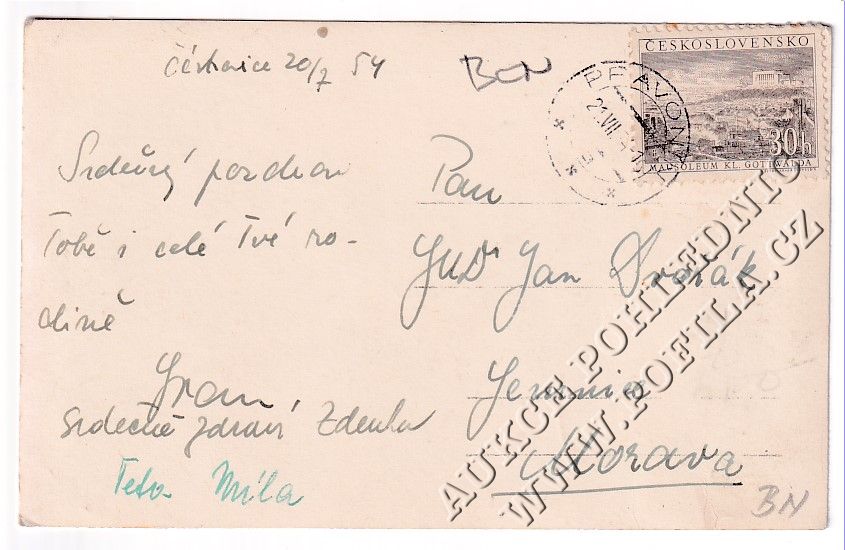 20/7 54
BCN
ČESKOSLOVENSKO
30h
MAUSOLEUM KL. GOTTWALDA
PRAVONÍN
21.VII.54
Srdečný pozdrav
Tobě i celé Tvé ro-
dině
Srdečně zdraví Zdenka
Teta Míla
Pan
JUDr Jan Dvořák
Jemnice
Morava
BN
AUKCE POHLEDNIC
WWW.POFILA.CZ